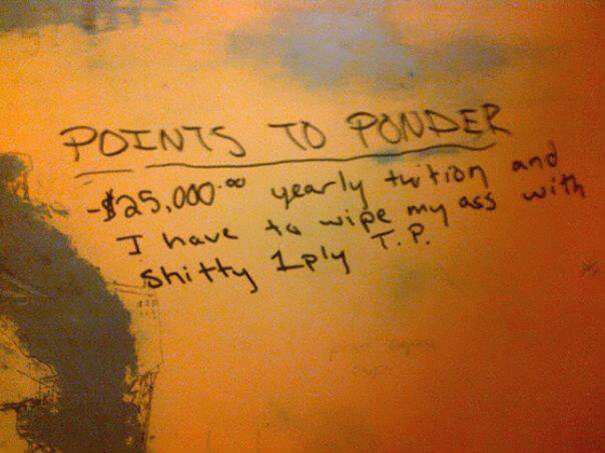 POINTS TO PONDER
-$25,000.00 yearly tuition and
I have to wipe my ass with
shitty 1ply T.P.